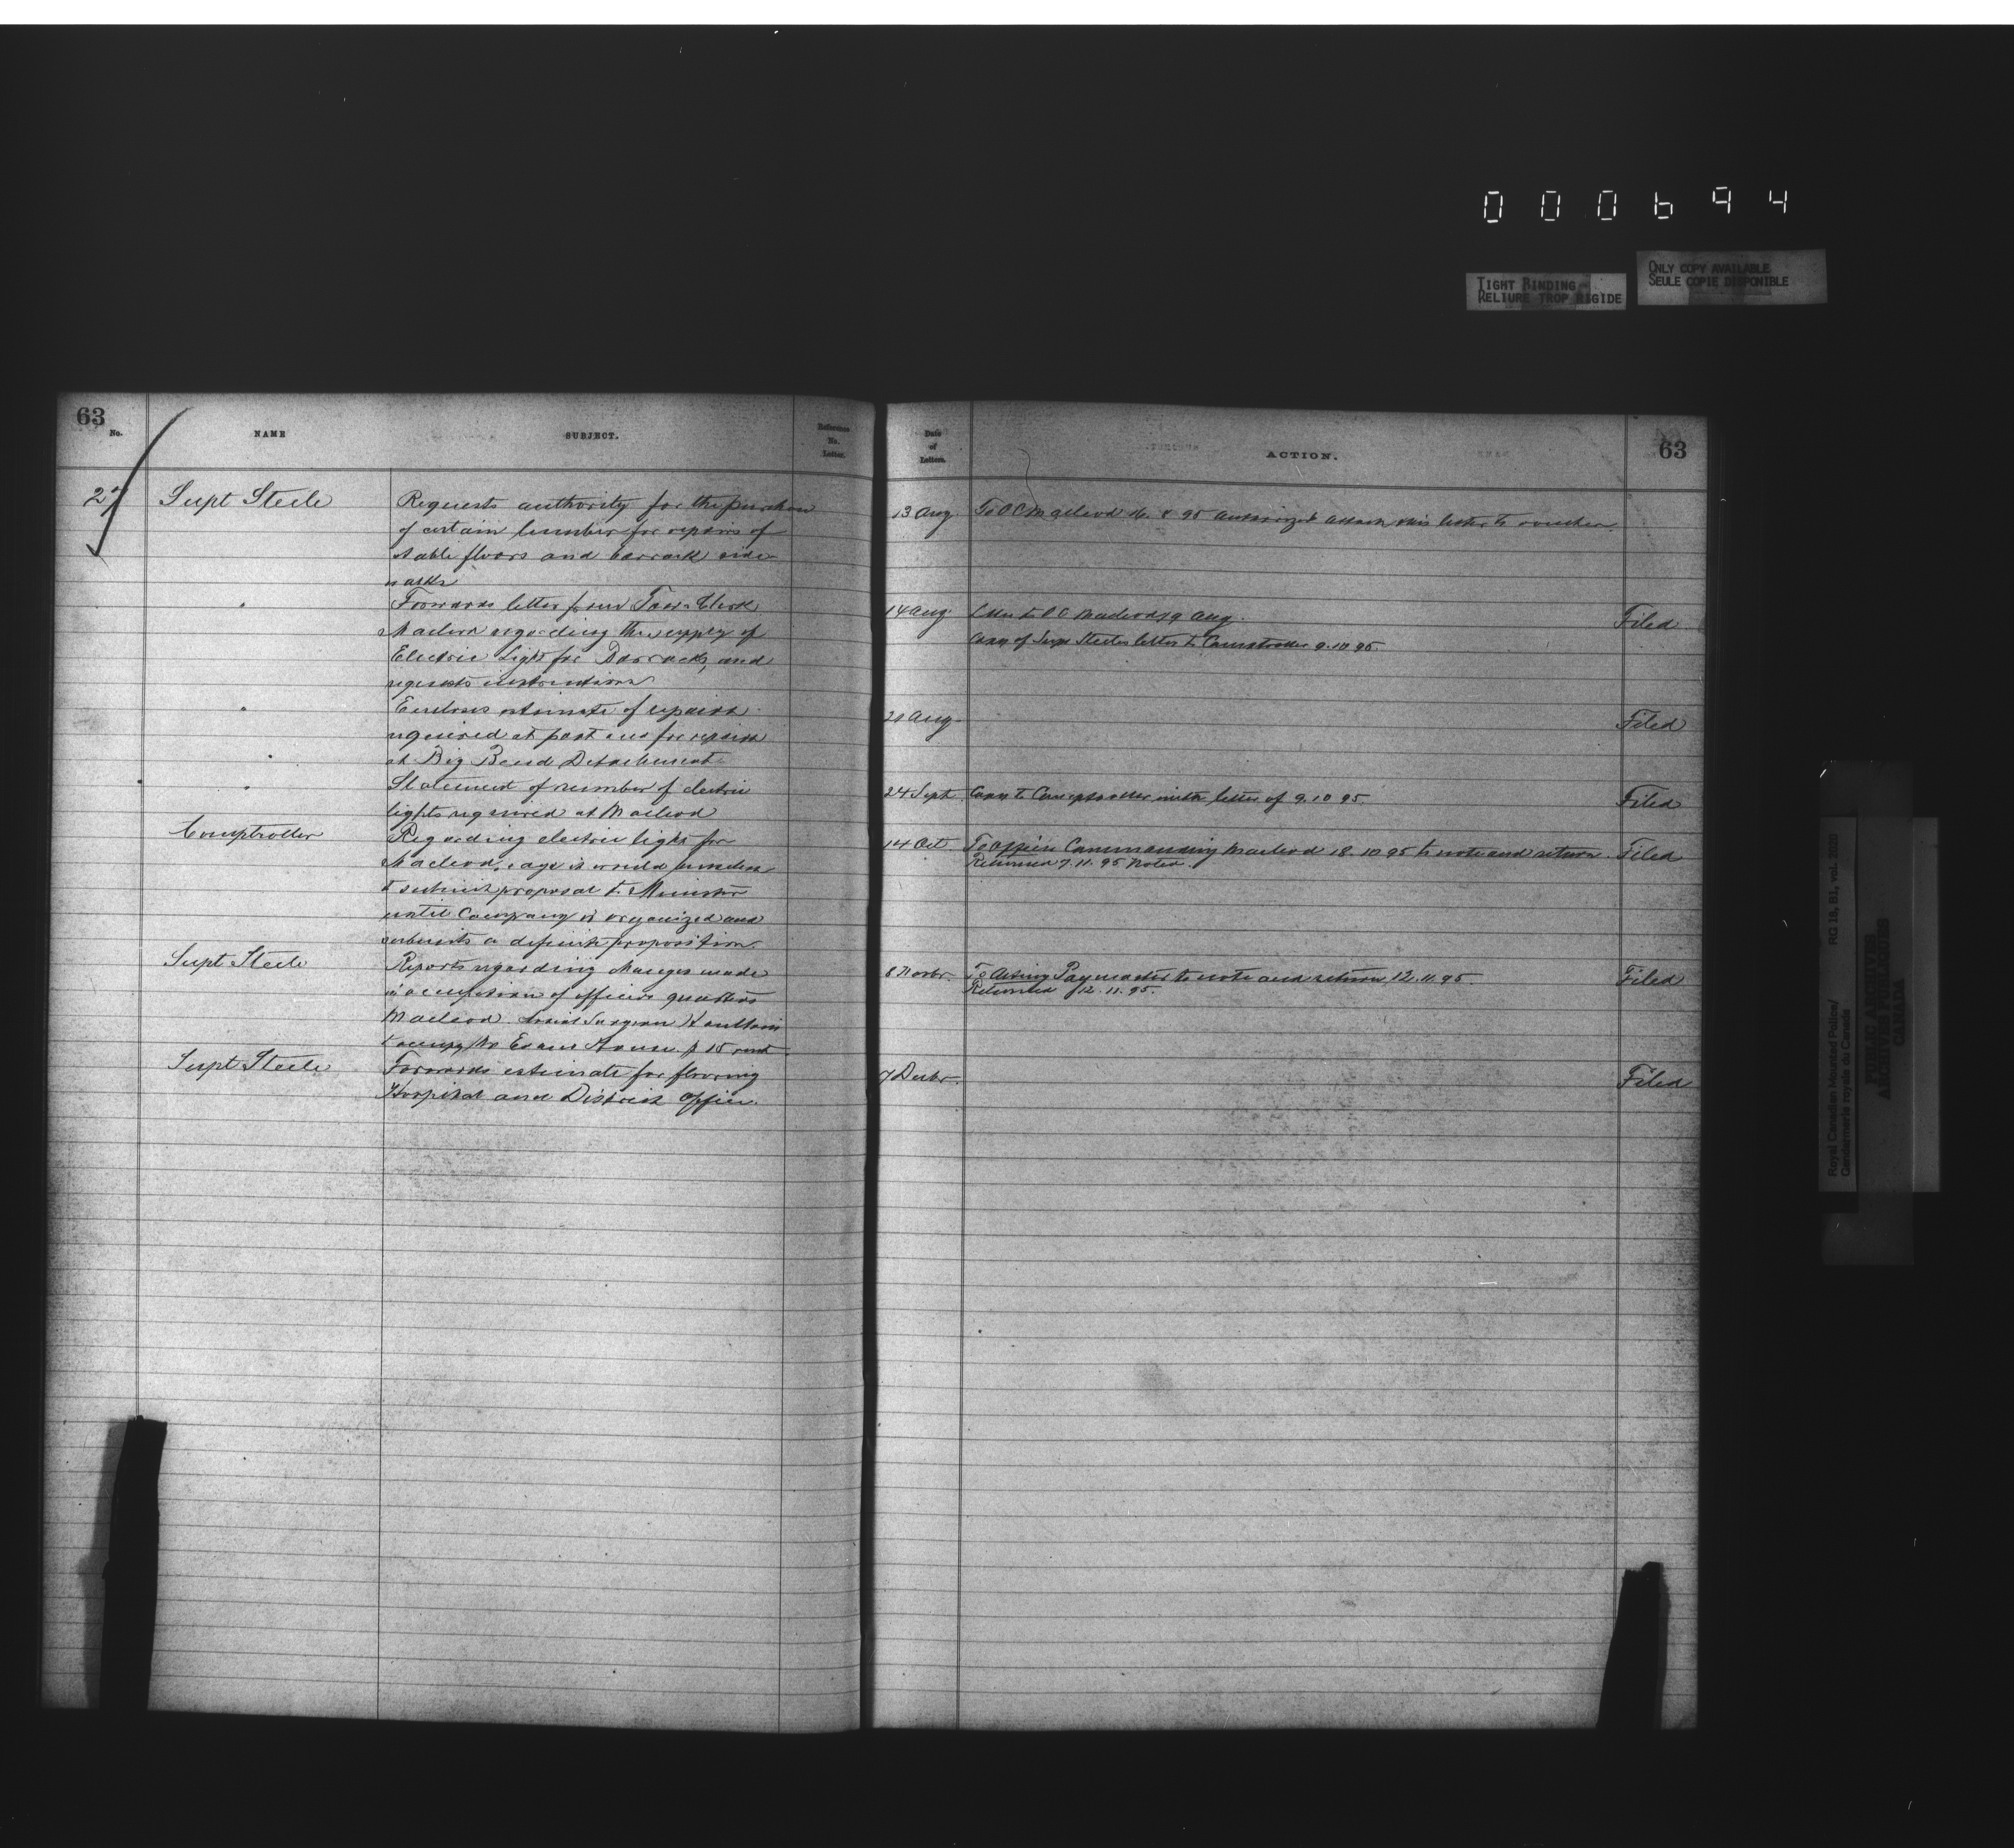 000694
TIGHT BINDING
RELIURE TROP RIGIDE
ONLY COPY AVAILABLE
SEULE COPIE DISPONIBLE
63
No.
NAME
SUBJECT.
Reference
No.
Letter.
27
Supt Steele
Requests authority for the purchase
of certain lumber for repairs of
stable floors and barrack side
walks
"
Forwards letter from Town Clerk
Macleod regarding the supply of
Electric Light for Barracks, and
requests instructions
"
Encloses estimate of repairs
required at post and for repairs
"
at Big Bend Detachment
"
Statement of number of electric
lights required at Macleod
Comptroller
Regarding electric light for
Macleod, says it would
to submit proposal to Minister
until Company is organized and
submits a definite proposition.
Supt Steele
Reports regarding changes made
in occupation of officers quarters
Macleod. Assist Surgeon Haultain
to occupy Mr Evans House. $ 15 rent
Supt Steele
Forwards estimate for flooring
Hospital and District Office.
Date
of
Letters.
ACTION.
63
13 Aug
To OC Macleod 8 95 authorized attach this letter to voucher
14 Aug
Letter to OC Macleod 19 Aug.
Filed
Copy of Supt Steeles letter to Comptroller 9.10 95
20 Aug
Filed
24 Sept
Copy to Comptroller with letter of 9.10 95
Filed
14 Oct
To Officer Commanding Macleod 18.10 95 to note and return.
Filed
Returned 7.11.95 Noted
8 Novbr
To Acting Paymaster to note and return 12.11.95.
Filed
Returned 12.11.95.
7 Decbr
Filed
Royal Canadian Mounted Police/
Gendarmerie royale du Canada
RG 18, B1, vol. 2020
PUBLIC ARCHIVES
ARCHIVES PUBLIQUES
CANADA